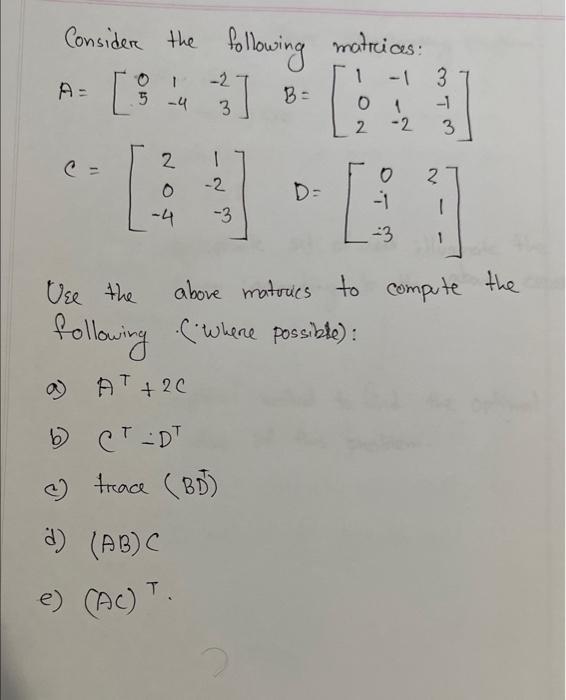 Consider the following matrices:
A = [ 0 1 -2 B = [ 1 -1 3
5 -4 3 ] 0 1 -1
2 -2 3 ]
C = [ 2 1 D = [ 0 2
0 -2 -1 1
-4 -3 ] -3 1 ]
Use the above matrics to compute the
following (where possible):
a) A^T + 2C
b) C^T - D^T
c) trace (BD^T)
d) (AB)C
e) (AC)^T.